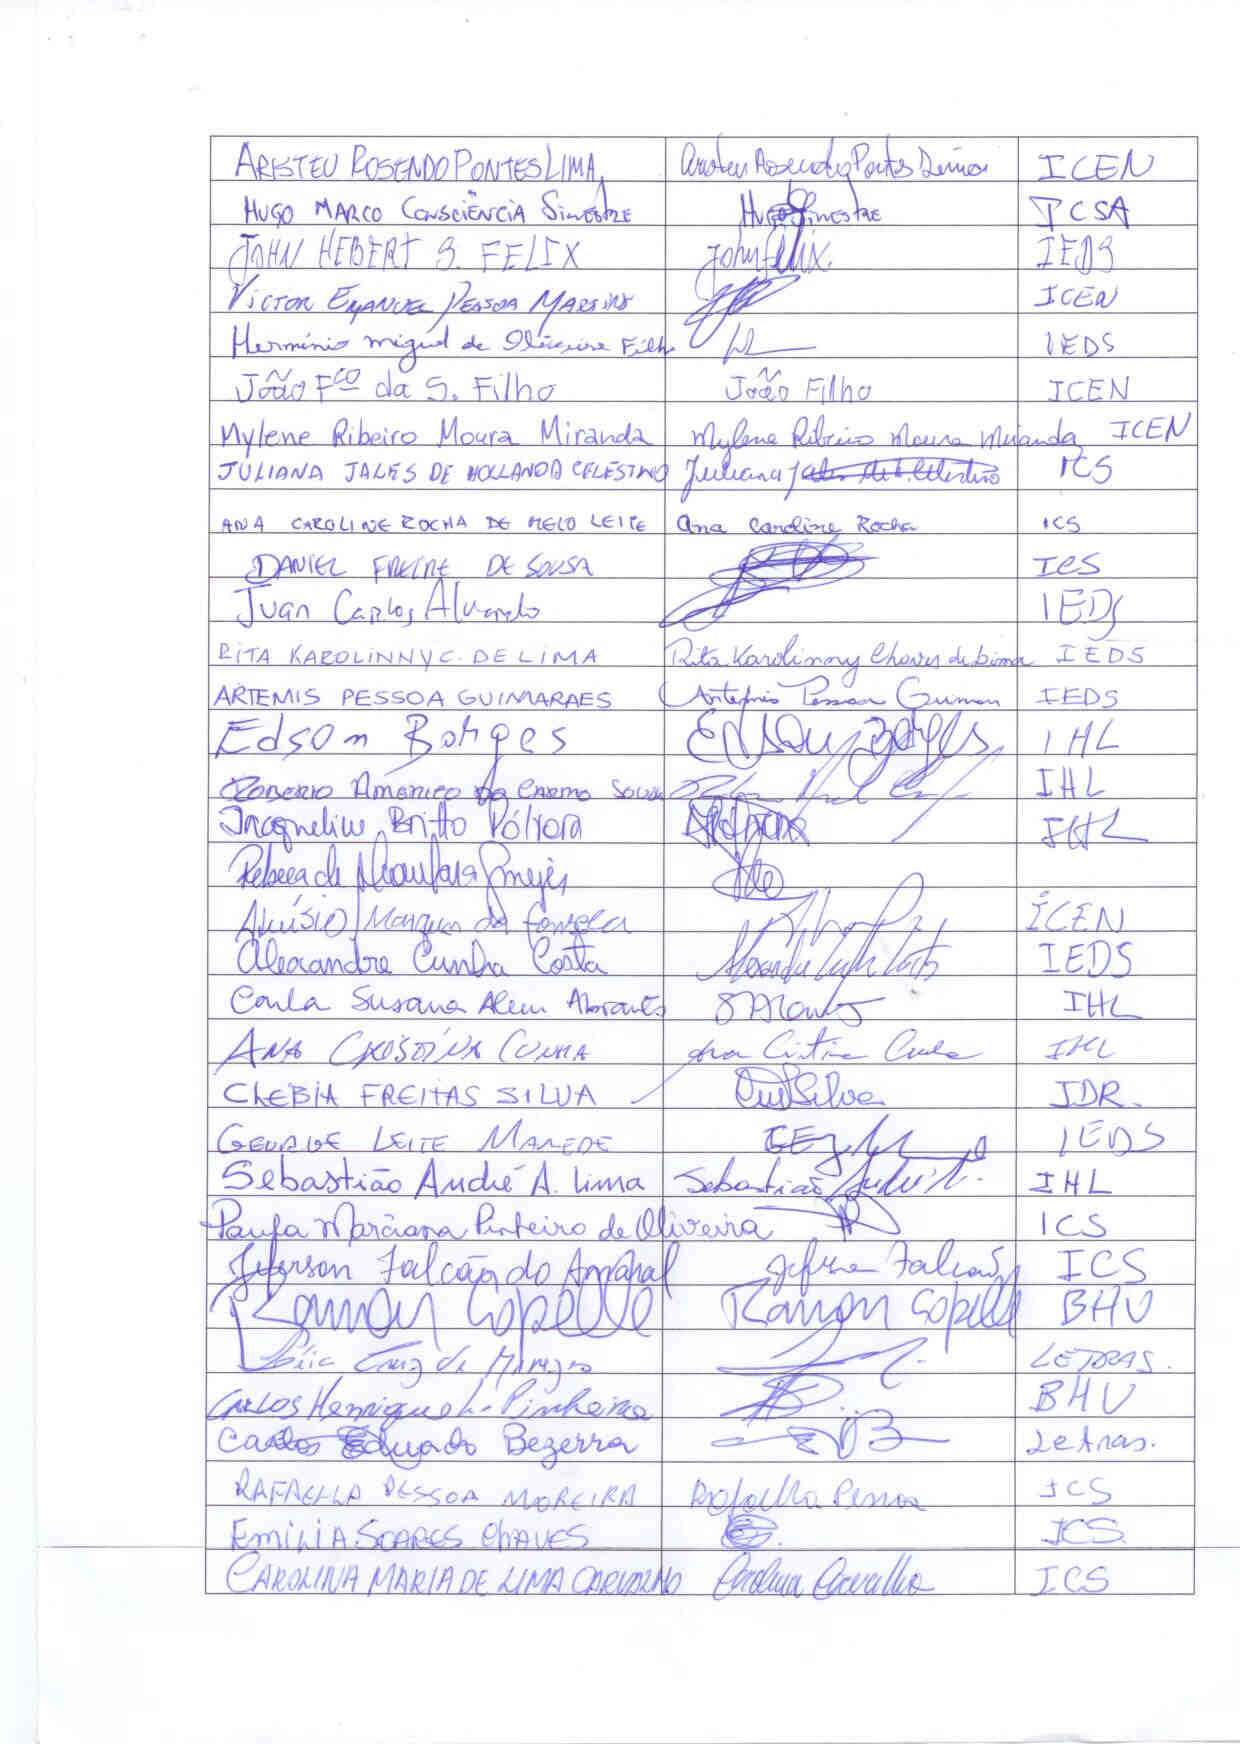 ARISTEU ROSENDO PONTES LIMA Aristeu Rosendo Pontes Lima ICEN
HUGO MARCO CONSCIÊNCIA SILVESTRE Hugo Silvestre ICSA
JOHN HEBERT S. FELIX John Felix. IEDS
VICTOR EMANUEL PESSOA MARTINS ICEN
Hermínio miguel de Oliveira Filho IEDS
João Fco da S. Filho João Filho ICEN
Mylene Ribeiro Moura Miranda Mylene Ribeiro Moura Miranda ICEN
JULIANA JALES DE HOLLANDA CELESTINO Juliana Jales de H. Celestino ICS
ANA CAROLINE ROCHA DE MELO LEITE Ana Caroline Rocha ICS
DANIEL FREIRE DE SOUSA ICS
Juan Carlos Alvarado IEDS
RITA KAROLINNY C. DE LIMA Rita Karolinny Chaves de Lima IEDS
ARTEMIS PESSOA GUIMARAES Artemis Pessoa Guimar IEDS
Edson Borges Edson Borges IHL
ROBERIO AMÉRICO DO CARMO SOUZA IHL
Jacqueline Britto Pólvora IHL
Rebeca de Alcantara
ALUÍSIO Marques da Fonseca ICEN
Alexandre Cunha Costa Alexandre Cunha Costa IEDS
Carla Susana Alem Abrantes IHL
ANA CRISTINA CUNHA Ana Cristina Cunha IHL
CLEBIA FREITAS SILVA Silva IDR.
GEORGE LEITE MAMEDE IEDS
Sebastião André A. Lima Sebastião André IHL
Paula Marciana Pinheiro de Oliveira ICS
Jeferson Falcão do Amaral Jeferson Falcão ICS
Ramon Capelle Ramon Capelle BHU
Cruz de LETRAS.
CARLOS Henrique L. Pinheiro BHU
Carlos Eduardo Bezerra Letras.
RAFAELLA PESSOA MOREIRA Rafaella Pessoa ICS
EMILIA SOARES CHAVES ICS.
CAROLINA MARIA DE LIMA CARVALHO Carolina Carvalho ICS